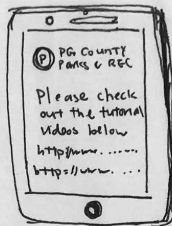 P PG County
Parks & REC
Please check
out the tutorial
videos below
http//www. ......
http://www. ....